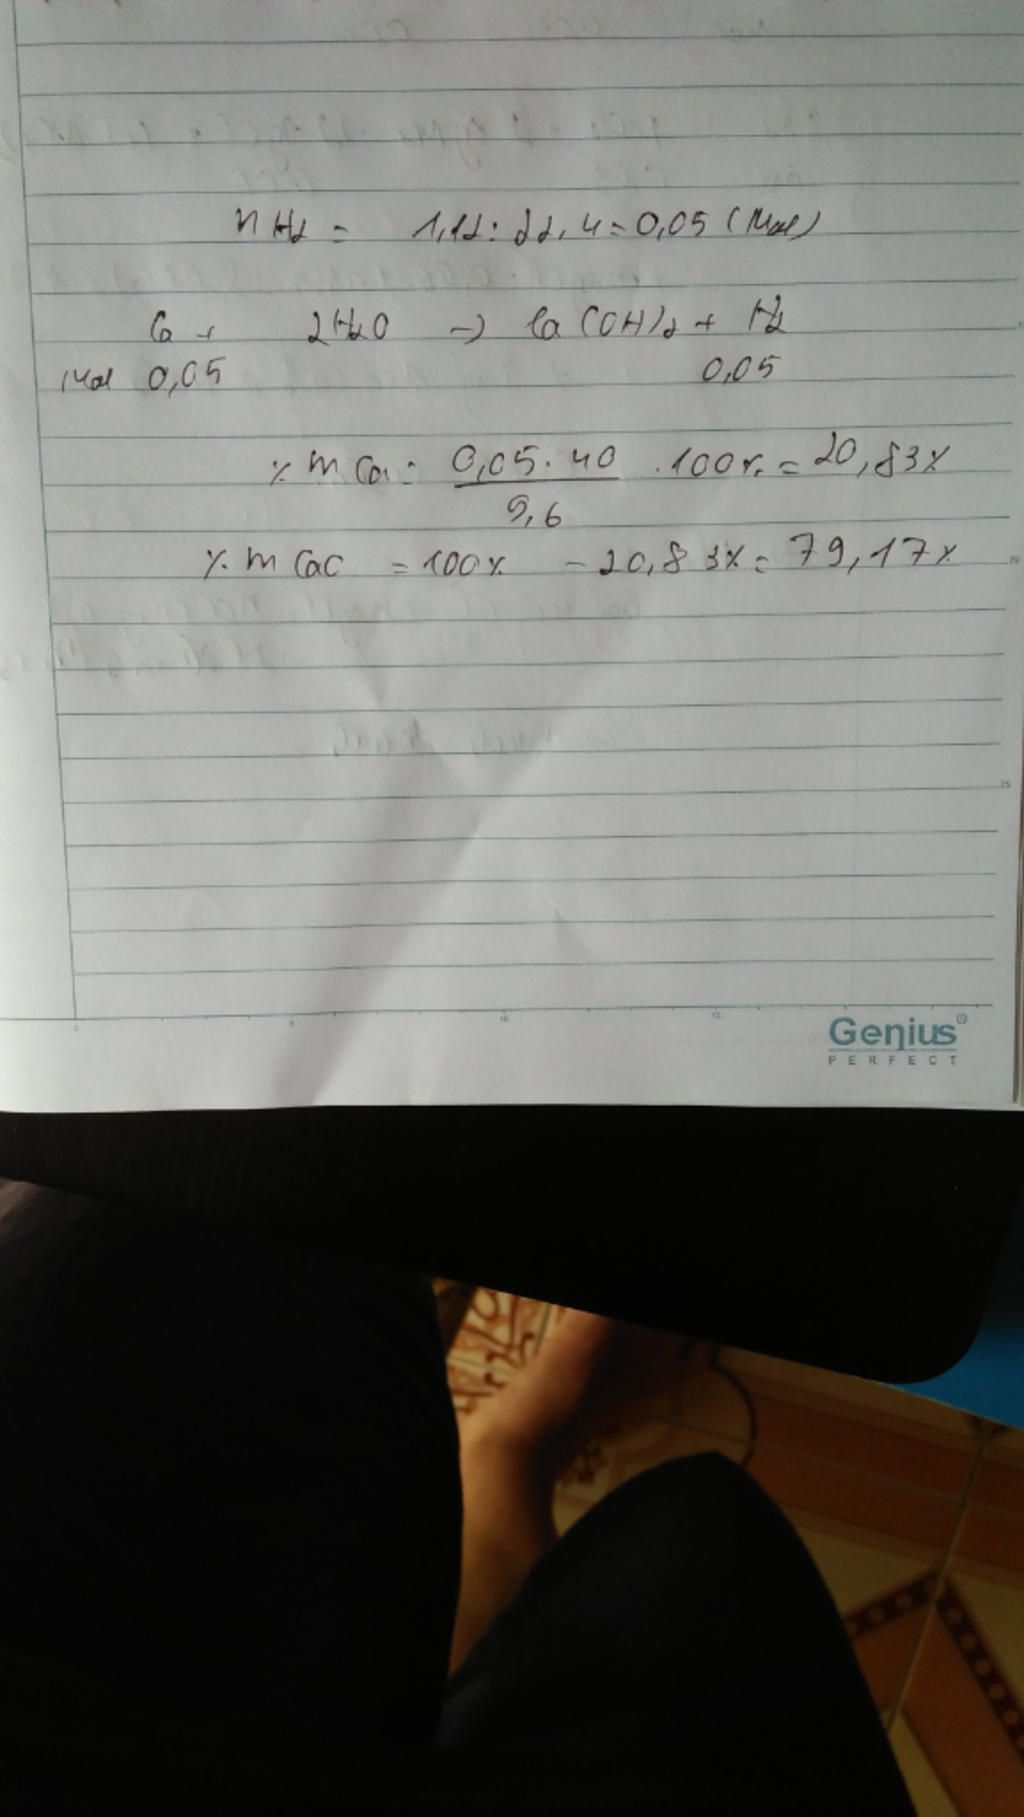 nH2 = 1,12 : 22,4 = 0,05 (Mol)
Ca + 2H2O -> Ca(OH)2 + H2
Mol 0,05 0,05
% mCa = 0,05 . 40 / 9,6 . 100% = 20,83%
% mCaC = 100% - 20,83% = 79,17%
Genius®
PERFECT